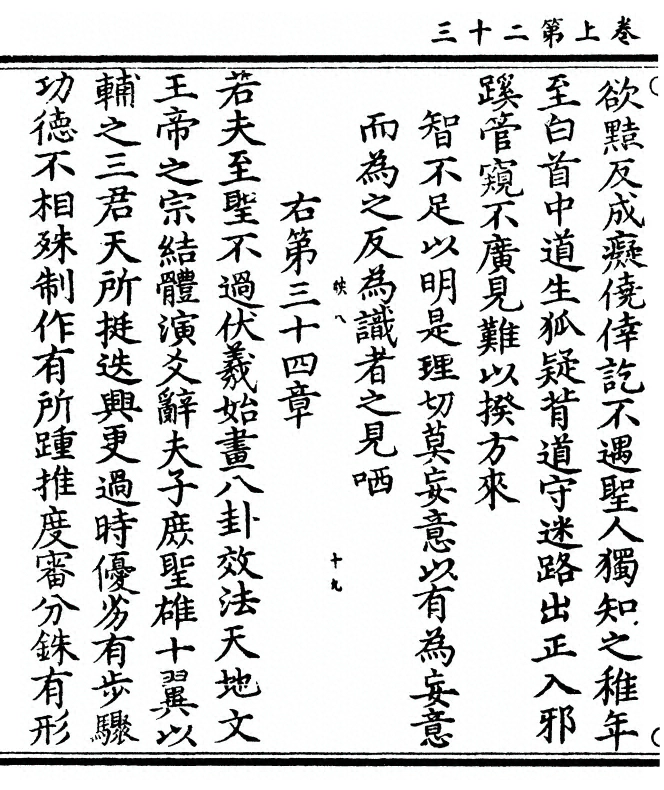 卷上第二十三
欲黠反成癡僥倖訖不遇聖人獨知之稚年
至白首中道生狐疑背道守迷路出正入邪
蹊管窺不廣見難以揆方來
智不足以明是理切莫妄意以有為妄意
而為之反為識者之見哂
映八
十九
右第三十四章
若夫至聖不過伏羲始畫八卦效法天地文
王帝之宗結體演爻辭夫子庶聖雄十翼以
輔之三君天所挺迭興更過時優劣有步驟
功德不相殊制作有所踵推度審分銖有形